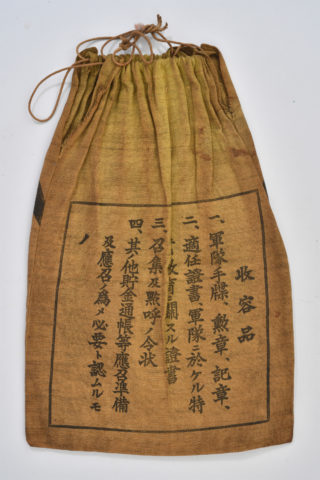 收容品
一、軍隊手牒、勲章、記章、
二、適任證書、軍隊ニ於ケル特
教育ニ關スル證書
三、召集及點呼ノ令狀
四、其ノ他貯金通帳等應召準備
及應召ノ爲メ必要ト認ムルモ
ノ